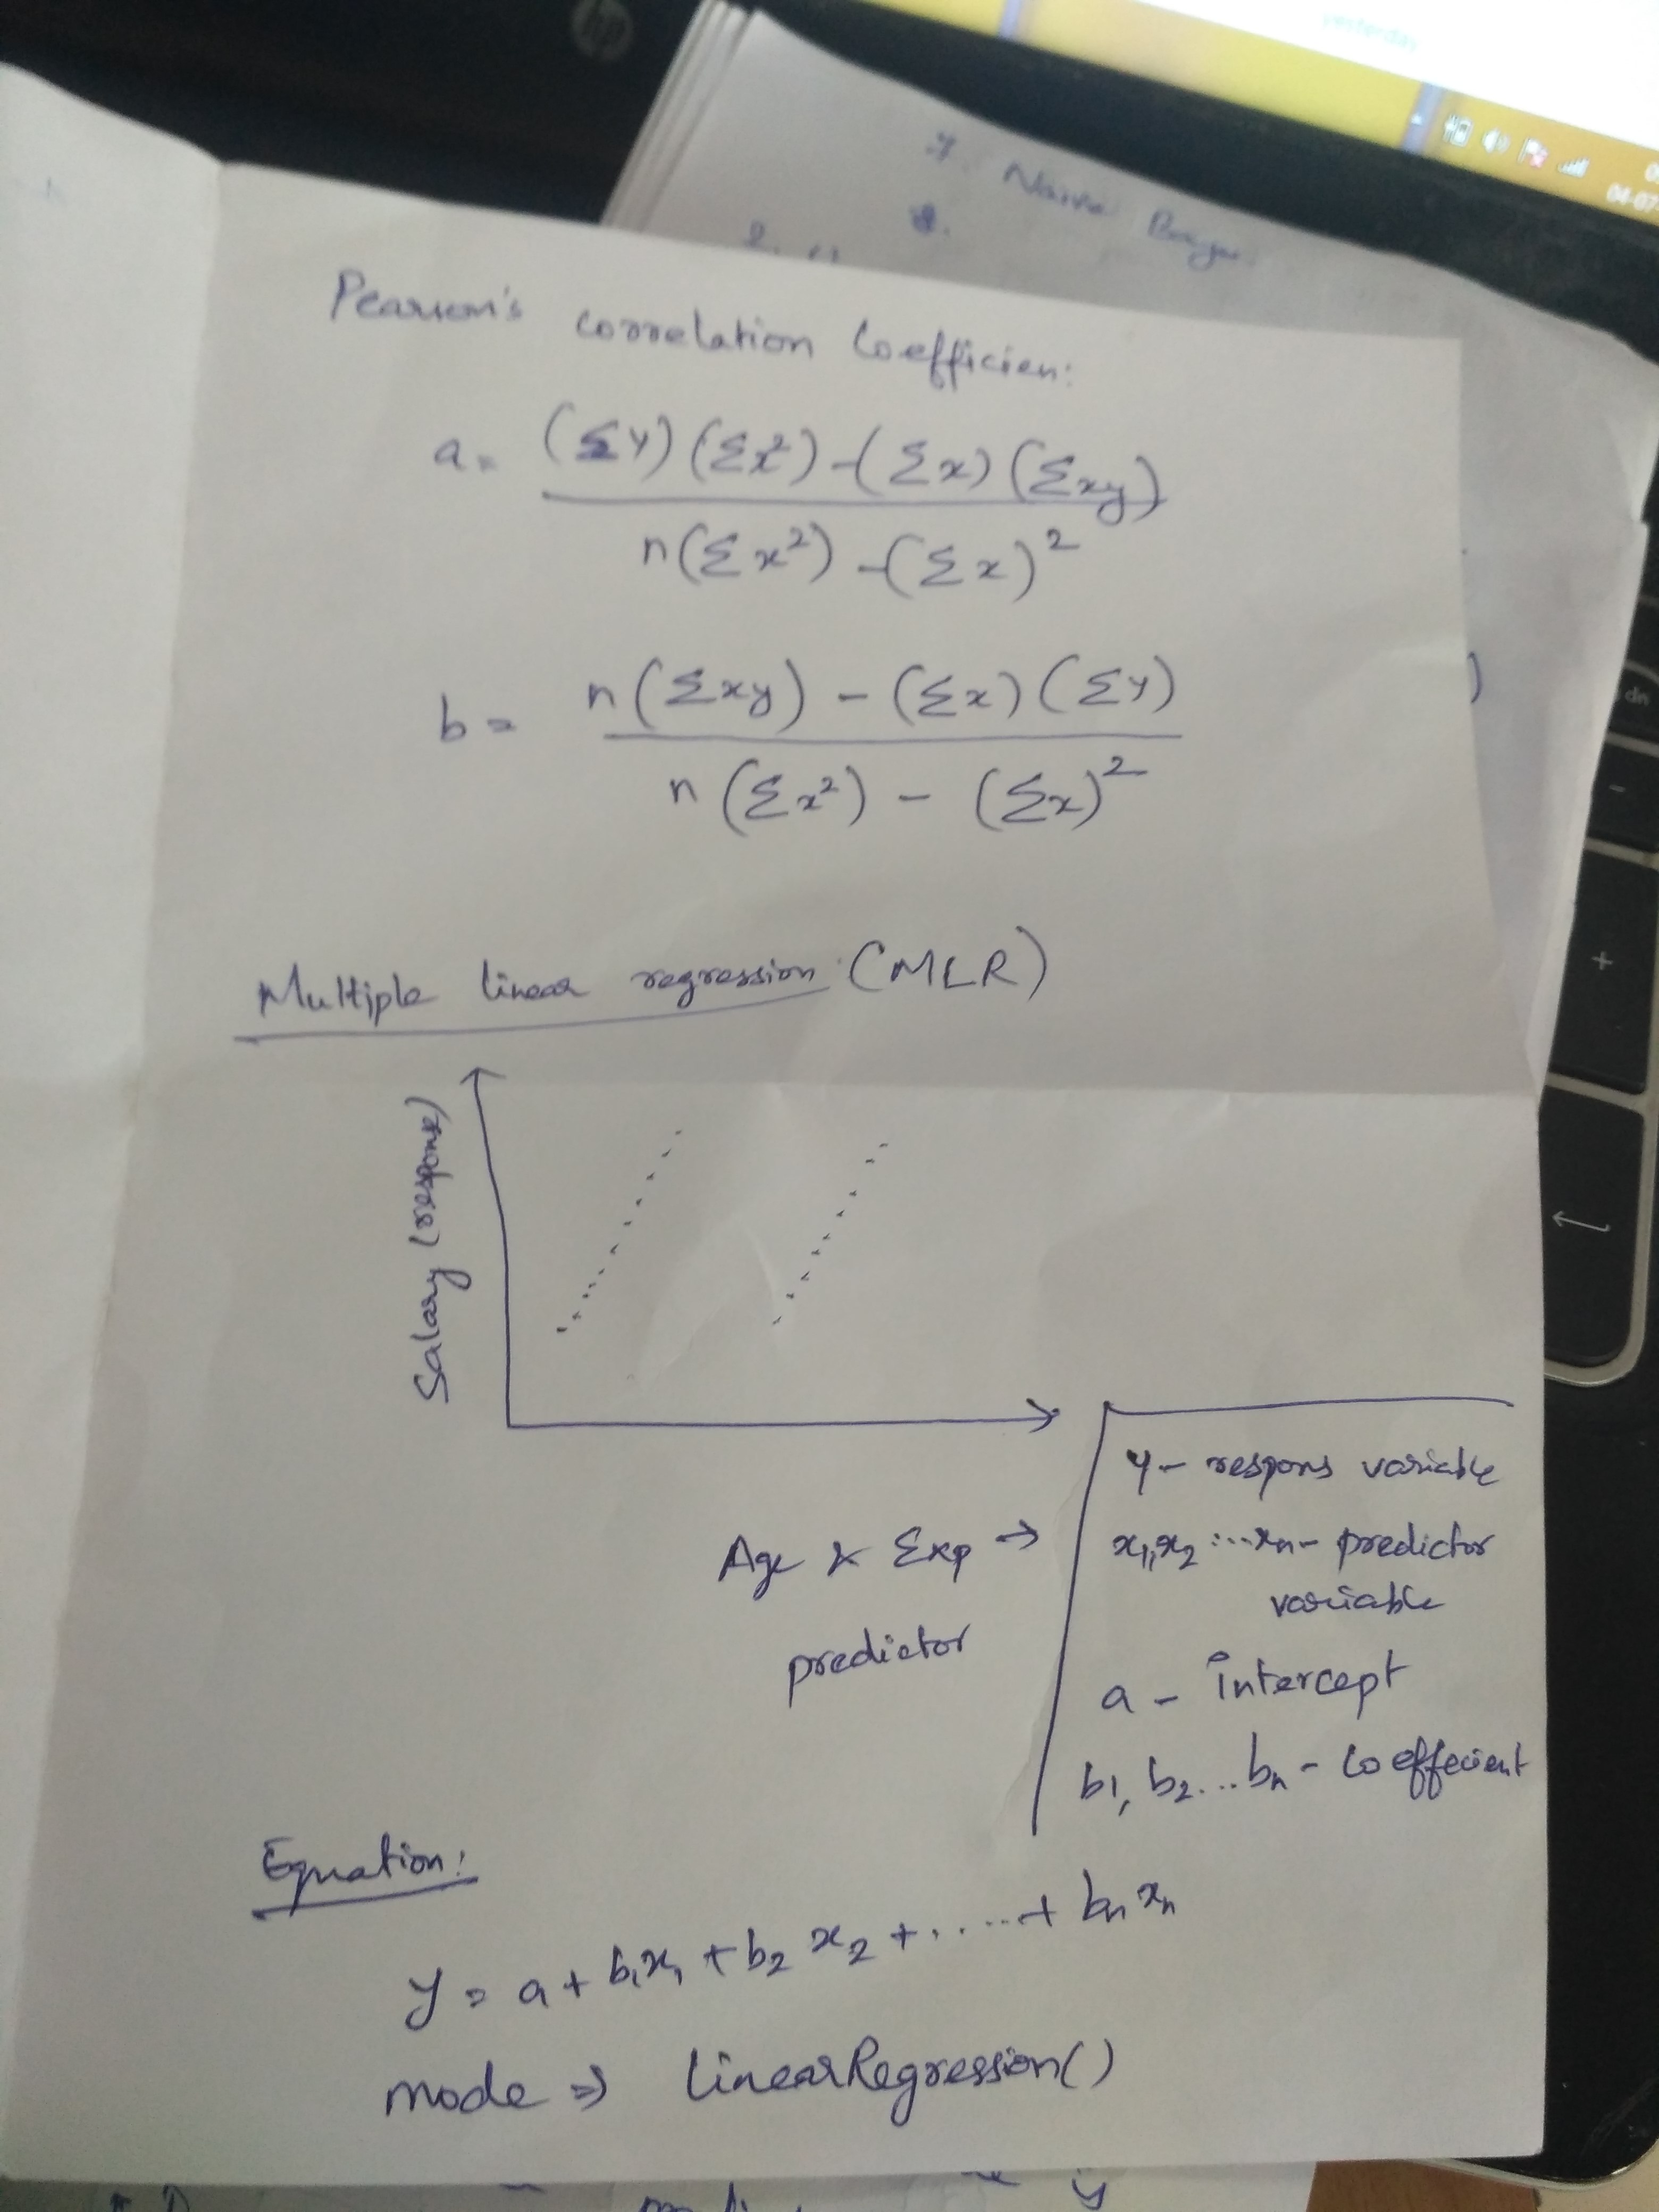 hp
yesterday
04-07
7. Naive Bayes
8.
Pearson's correlation Coefficien:
a = (Σy)(Σx²) - (Σx)(Σxy)
n(Σx²) - (Σx)²
b = n(Σxy) - (Σx)(Σy)
n(Σx²) - (Σx)²
dn
-
+
Multiple linear regression (MLR)
Salary (response)
Age & Exp →
predictor
y - respons variable
x1,x2 ...xn - predictor
variable
a - intercept
b1, b2...bn - coeffecient
Equation:
y = a + b1x1 + b2 x2 + ..... + bn xn
mode => linearRegression()
y